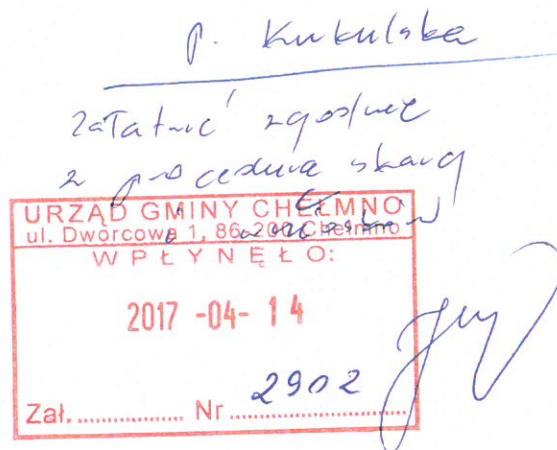 p. Kukulska
załatwić zgodnie
z procedurą skarg
i wniosków
URZĄD GMINY CHEŁMNO
ul. Dworcowa 1, 86-200 Chełmno
WPŁYNĘŁO:
2017 -04- 14
Zał. ................ Nr 2902